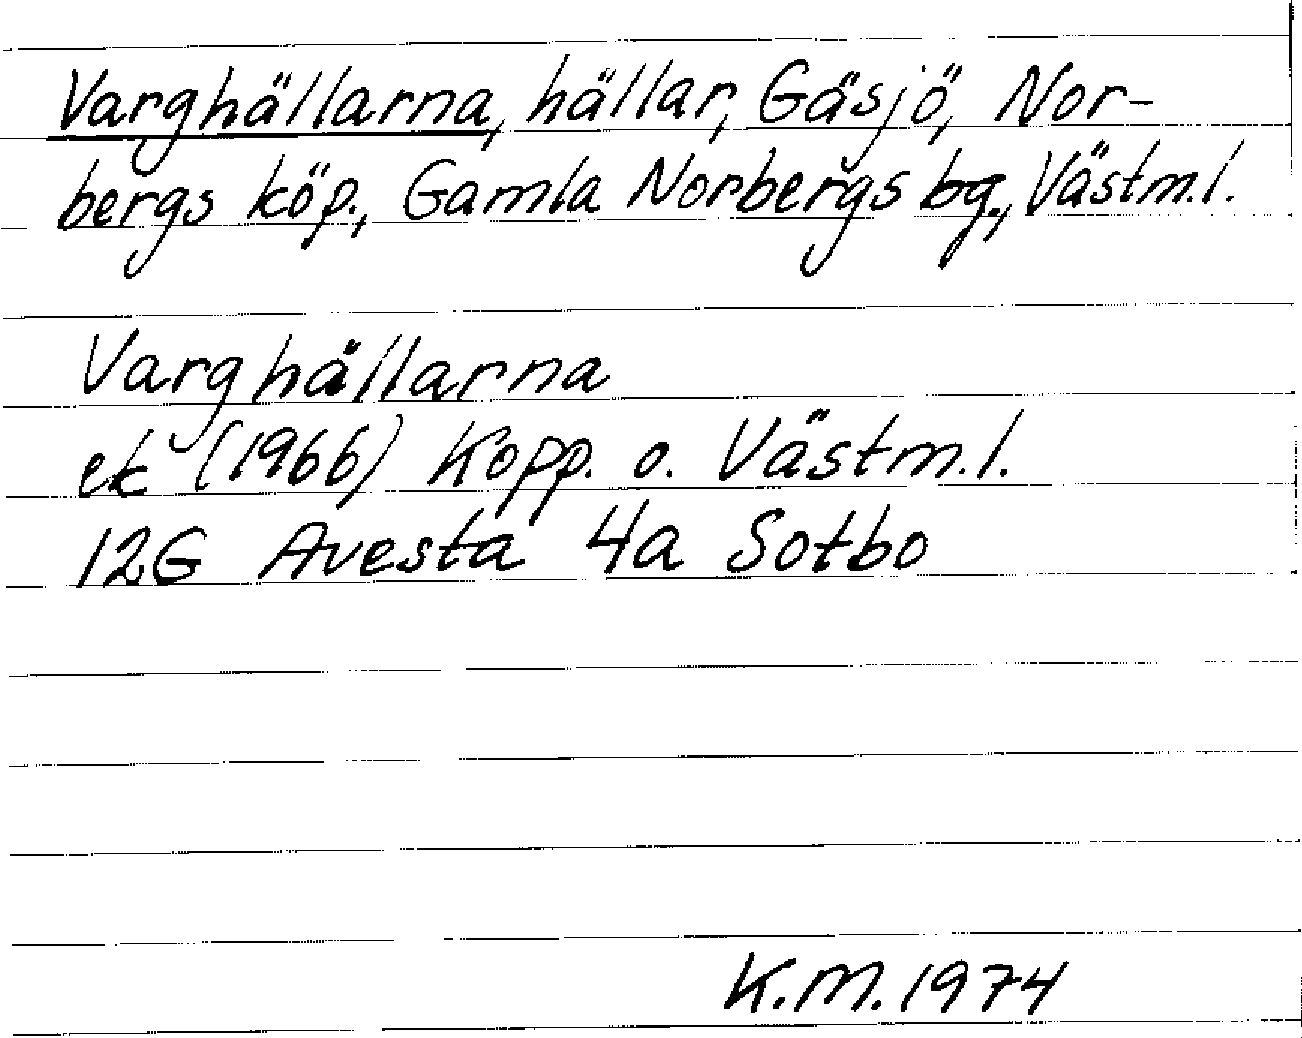 Varghällarna, hällar, Gäsjö, Nor-
bergs köp., Gamla Norbergs bg., Västm.l.
Varghällarna
ek (1966) Kopp. o. Västm.l.
12G Avesta 4a Sotbo
K.M. 1974